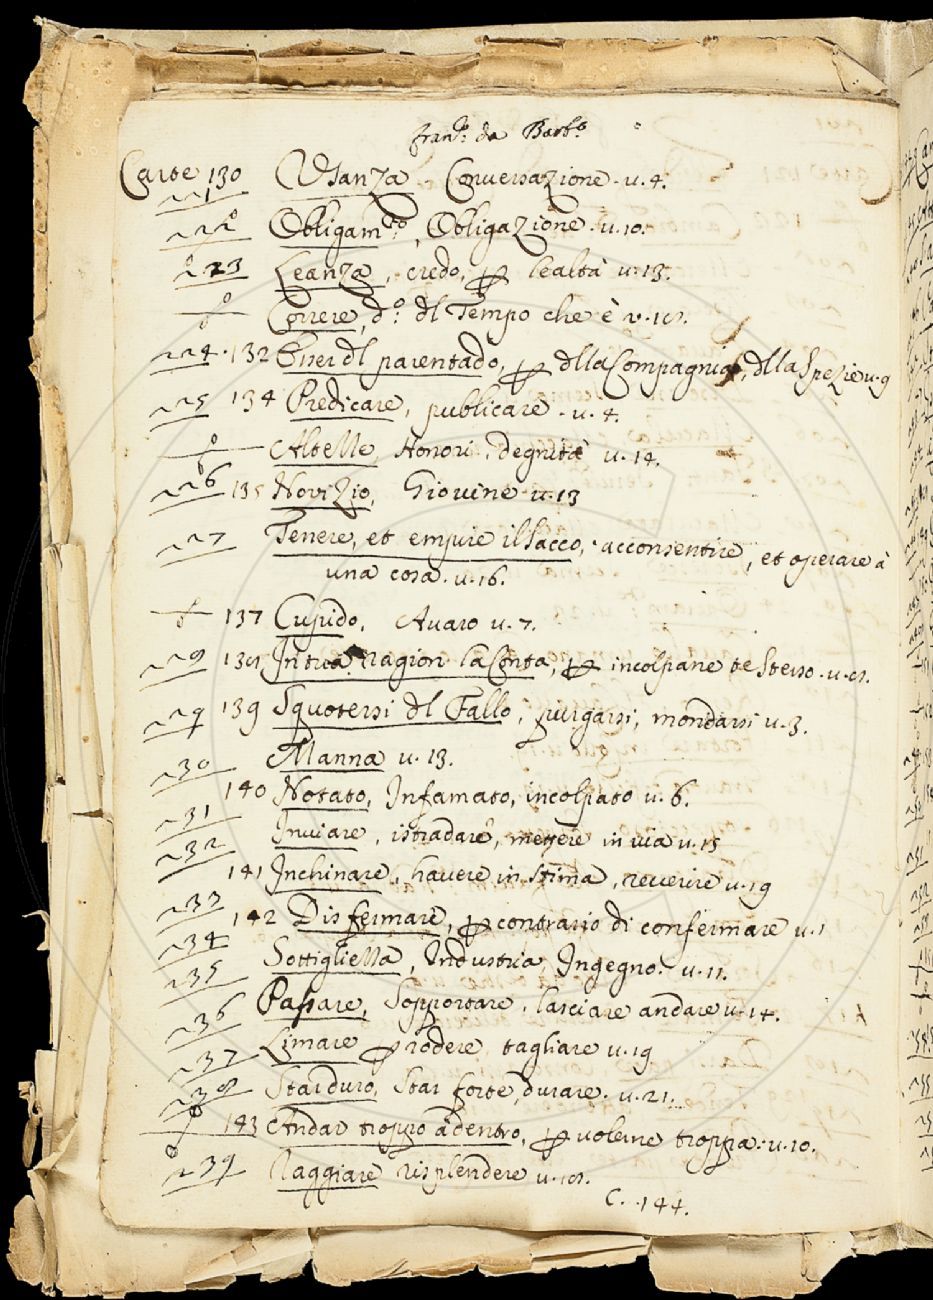 Fran.º da Barb.º
Carte 130 Usanza. Conversazione. u. 4.
Obligam.to, Obligazione. u. 10.
23 Leanza, credo, p lealtà u. 13.
Correre, d.º dl Tempo che è v. 18.
224. 132 Esser dl parentado, p dlla Compagnia, dlla Spezie u. 9
225 134 Predicare, publicare. u. 4.
Altezze, Honori, degnità u. 14.
226 135 Novizio, Giovine u. 13
227 Tenere, et empire il sacco, acconsentire, et operare à
una cosa. u. 16.
137 Cupido, Avaro u. 7.
228 138 In tua ragion la Conta, p incolpane te stesso. u. 8.
229 139 Squotersi dl Fallo, purgarsi, mondarsi u. 3.
230 Manna u. 13.
140 Notato, Infamato, incolpato u. 6.
231
232 Inviare, istradare, mettere in via u. 15
141 Inchinare, havere in stima, reverire u. 19
233 142 Disfermare, p contrario di confermare u. 1
234 Sottigliezza, Industria, Ingegno. u. 11.
235
236 Passare, Sopportare, lasciare andare u. 14.
237 Limare p rodere, tagliare u. 19
238 Star duro, Star forte, durare. u. 21.
143 Andar troppo a dentro, p volerne troppa. u. 10.
239 Raggiare risplendere u. 18.
C. 144.